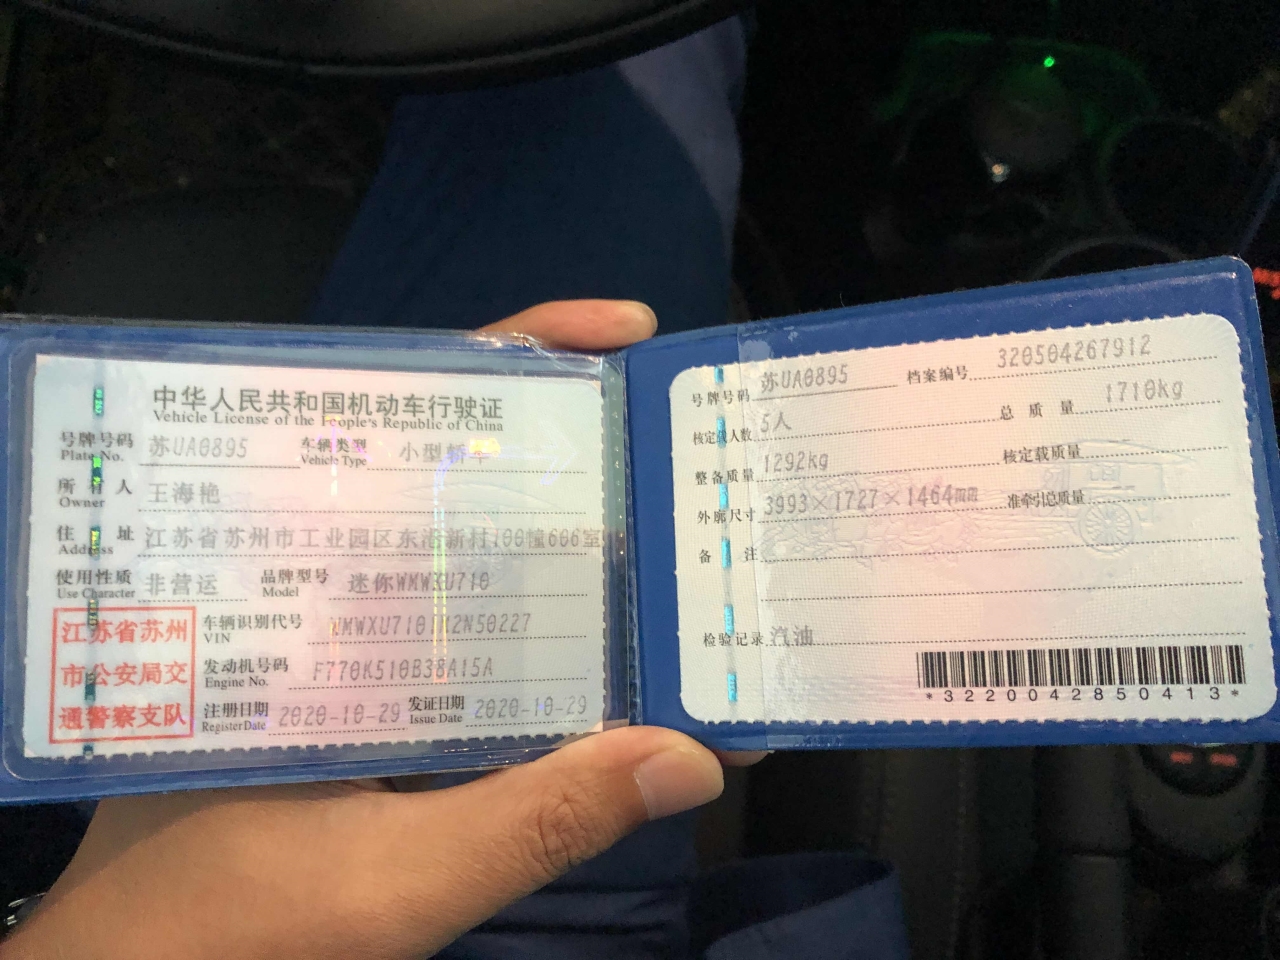 中华人民共和国机动车行驶证
Vehicle License of the People's Republic of China
号牌号码 Plate No. 苏UA0895 车辆类型 Vehicle Type 小型轿车
所有人 Owner 王海艳
住址 Address 江苏省苏州市工业园区东港新村100幢606室
使用性质 Use Character 非营运 品牌型号 Model 迷你WMWXU710
车辆识别代号 VIN
发动机号码 Engine No. F770K510B38A15A
注册日期 Register Date 2020-10-29 发证日期 Issue Date 2020-10-29
江苏省苏州
市公安局交
通警察支队
号牌号码 苏UA0895 档案编号 320504267912
核定载人数 5人 总质量 1710kg
整备质量 1292kg 核定载质量
外廓尺寸 3993×1727×1464mm 准牵引总质量
备注
检验记录 汽油
*3220042850413*